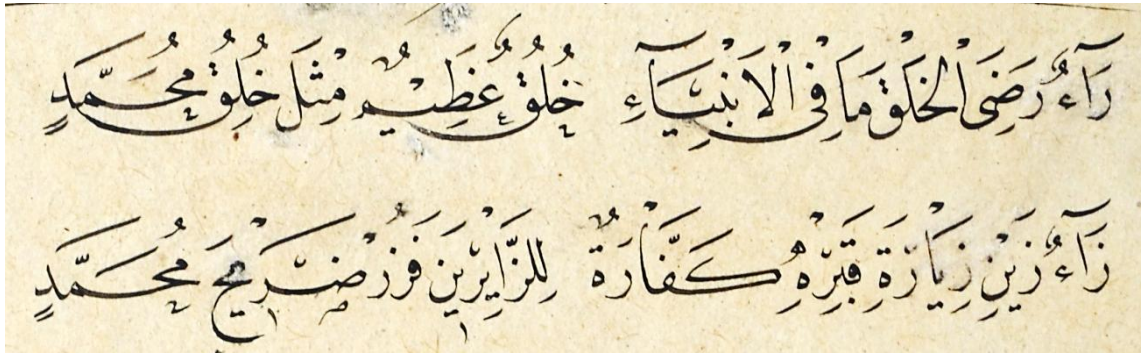 رَآءٌ رَضَى الْخَلْقِ مَا فِى الْاَنْبِيَآءِ خُلُقٌ عَظِيْمٌ مِثْلَ خُلُقِ مُحَمَّدٍ
زَآءٌ زَيْنِ زِيَارَةِ قَبْرِهِ كَفَّارَةٌ لِلزَّايِرِيْنَ فَزُرْ ضَرِيْحَ مُحَمَّدٍ